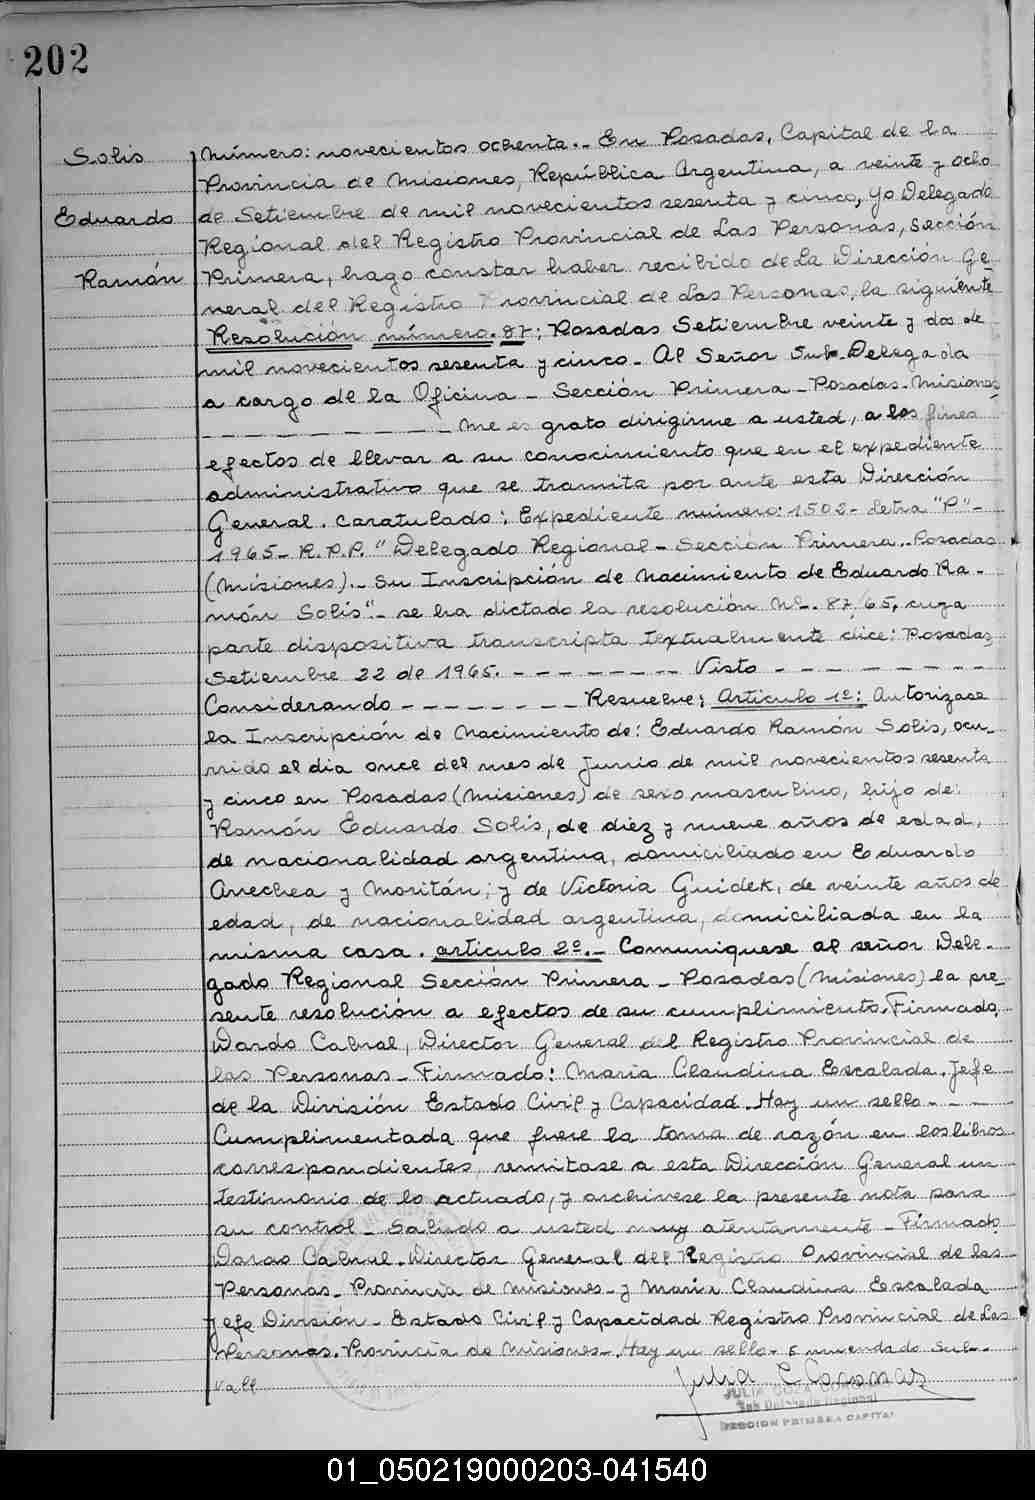 202
Solis
Eduardo
Ramón
Número: novecientos ochenta.- En Posadas, Capital de la
Provincia de Misiones, República Argentina, a veinte y ocho
de Setiembre de mil novecientos sesenta y cinco, yo Delegado
Regional del Registro Provincial de Las Personas, Sección
Primera, hago constar haber recibido de La Dirección Ge-
neral del Registro Provincial de Las Personas, la siguiente
Resolución número. 87; Posadas Setiembre veinte y dos de
mil novecientos sesenta y cinco- Al Señor Sub-Delegada
a cargo de la Oficina - Sección Primera - Posadas - Misiones
_ _ _ _ _ _ _ _ _ _ Me es grato dirigirme a usted, a los fines
efectos de llevar a su conocimiento que en el expediente
administrativo que se tramita por ante esta Dirección
General. caratulado: Expediente número: 1502- Letra "P"-
1965- R.P.P. "Delegado Regional - Sección Primera.- Posadas
(Misiones).- Su Inscripción de Nacimiento de Eduardo Ra-
món Solis"- se ha dictado la resolución Nº. 87/65, cuya
parte dispositiva transcripta textualmente dice: Posadas,
Setiembre 22 de 1965. - - - - - - - - Visto - - - - - - - - -
Considerando - - - - - - - - Resuelve: Artículo 1º: Autorizace
la Inscripción de Nacimiento de: Eduardo Ramón Solis, ocu-
rrido el dia once del mes de Junio de mil novecientos sesenta
y cinco en Posadas (Misiones) de sexo masculino, hijo de:
Ramón Eduardo Solis, de diez y nueve años de edad,
de nacionalidad argentina, domiciliado en Eduardo
Arrechea y Moritán; y de Victoria Guidek, de veinte años de
edad, de nacionalidad argentina, domiciliada en la
misma casa. artículo 2º.- Comuniquese al señor Dele-
gado Regional Sección Primera - Posadas (Misiones) la pre-
sente resolución a efectos de su cumplimiento. Firmado,
Dardo Cabral, Director General del Registro Provincial de
las Personas - Firmado: Maria Claudina Escalada. Jefe
de la División Estado Civil y Capacidad. Hay un sello - - -
Cumplimentada que fuere la toma de razón en los libros
correspondientes, remitase a esta Dirección General un
testimonio de lo actuado, y archivese la presente nota para
su control - Saludo a usted muy atentamente - Firmado
Dardo Cabral. Director General del Registro Provincial de las
Personas- Provincia de Misiones- y Maria Claudina Escalada
Jefe División - Estado Civil y Capacidad Registro Provincial de Las
Personas. Provincia de Misiones-. Hay un sello- Enmendado Sub-
Vale
SECCION PRIMERA CAPITAL
01_050219000203-041540